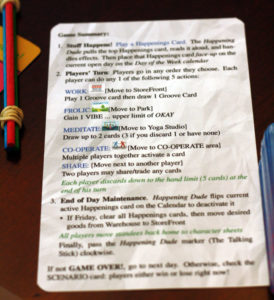 Game Summary:
1. Stuff Happens! Play a Happenings Card. The Happening
Dude pulls the top Happenings card, reads it aloud, and han-
dles effects. Then place that Happenings card face-up on the
current open day on the Day of the Week calendar
2. Players' Turn: Players go in any order they choose. Each
player can do any 1 of the following 5 actions
WORK: [Move to StoreFront]
Play 1 Groove card then draw 1 Groove Card
FROLIC: [Move to Park]
Gain 1 VIBE ... upper limit of OKAY
MEDITATE: [Move to Yoga Studio]
Draw up to 2 cards (3 if you discard 1 or have none)
CO-OPERATE: [Move to CO-OPERATE area]
Multiple players together activate a card
SHARE: [Move next to another player]
Two players may share/trade any cards
Each player discards down to the hand limit (5 cards) at the
end of his turn
3. End of Day Maintenance. Happening Dude flips current
active Happenings card on the Calendar to deactivate it
• If Friday, clear all Happenings cards, then move desired
goods from Warehouse to StoreFront
All players move standees back home to character sheets
Finally, pass the Happening Dude marker (The Talking
Stick) clockwise.
If not GAME OVER!, go to next day. Otherwise, check the
SCENARIO card: players either win or lose right now!